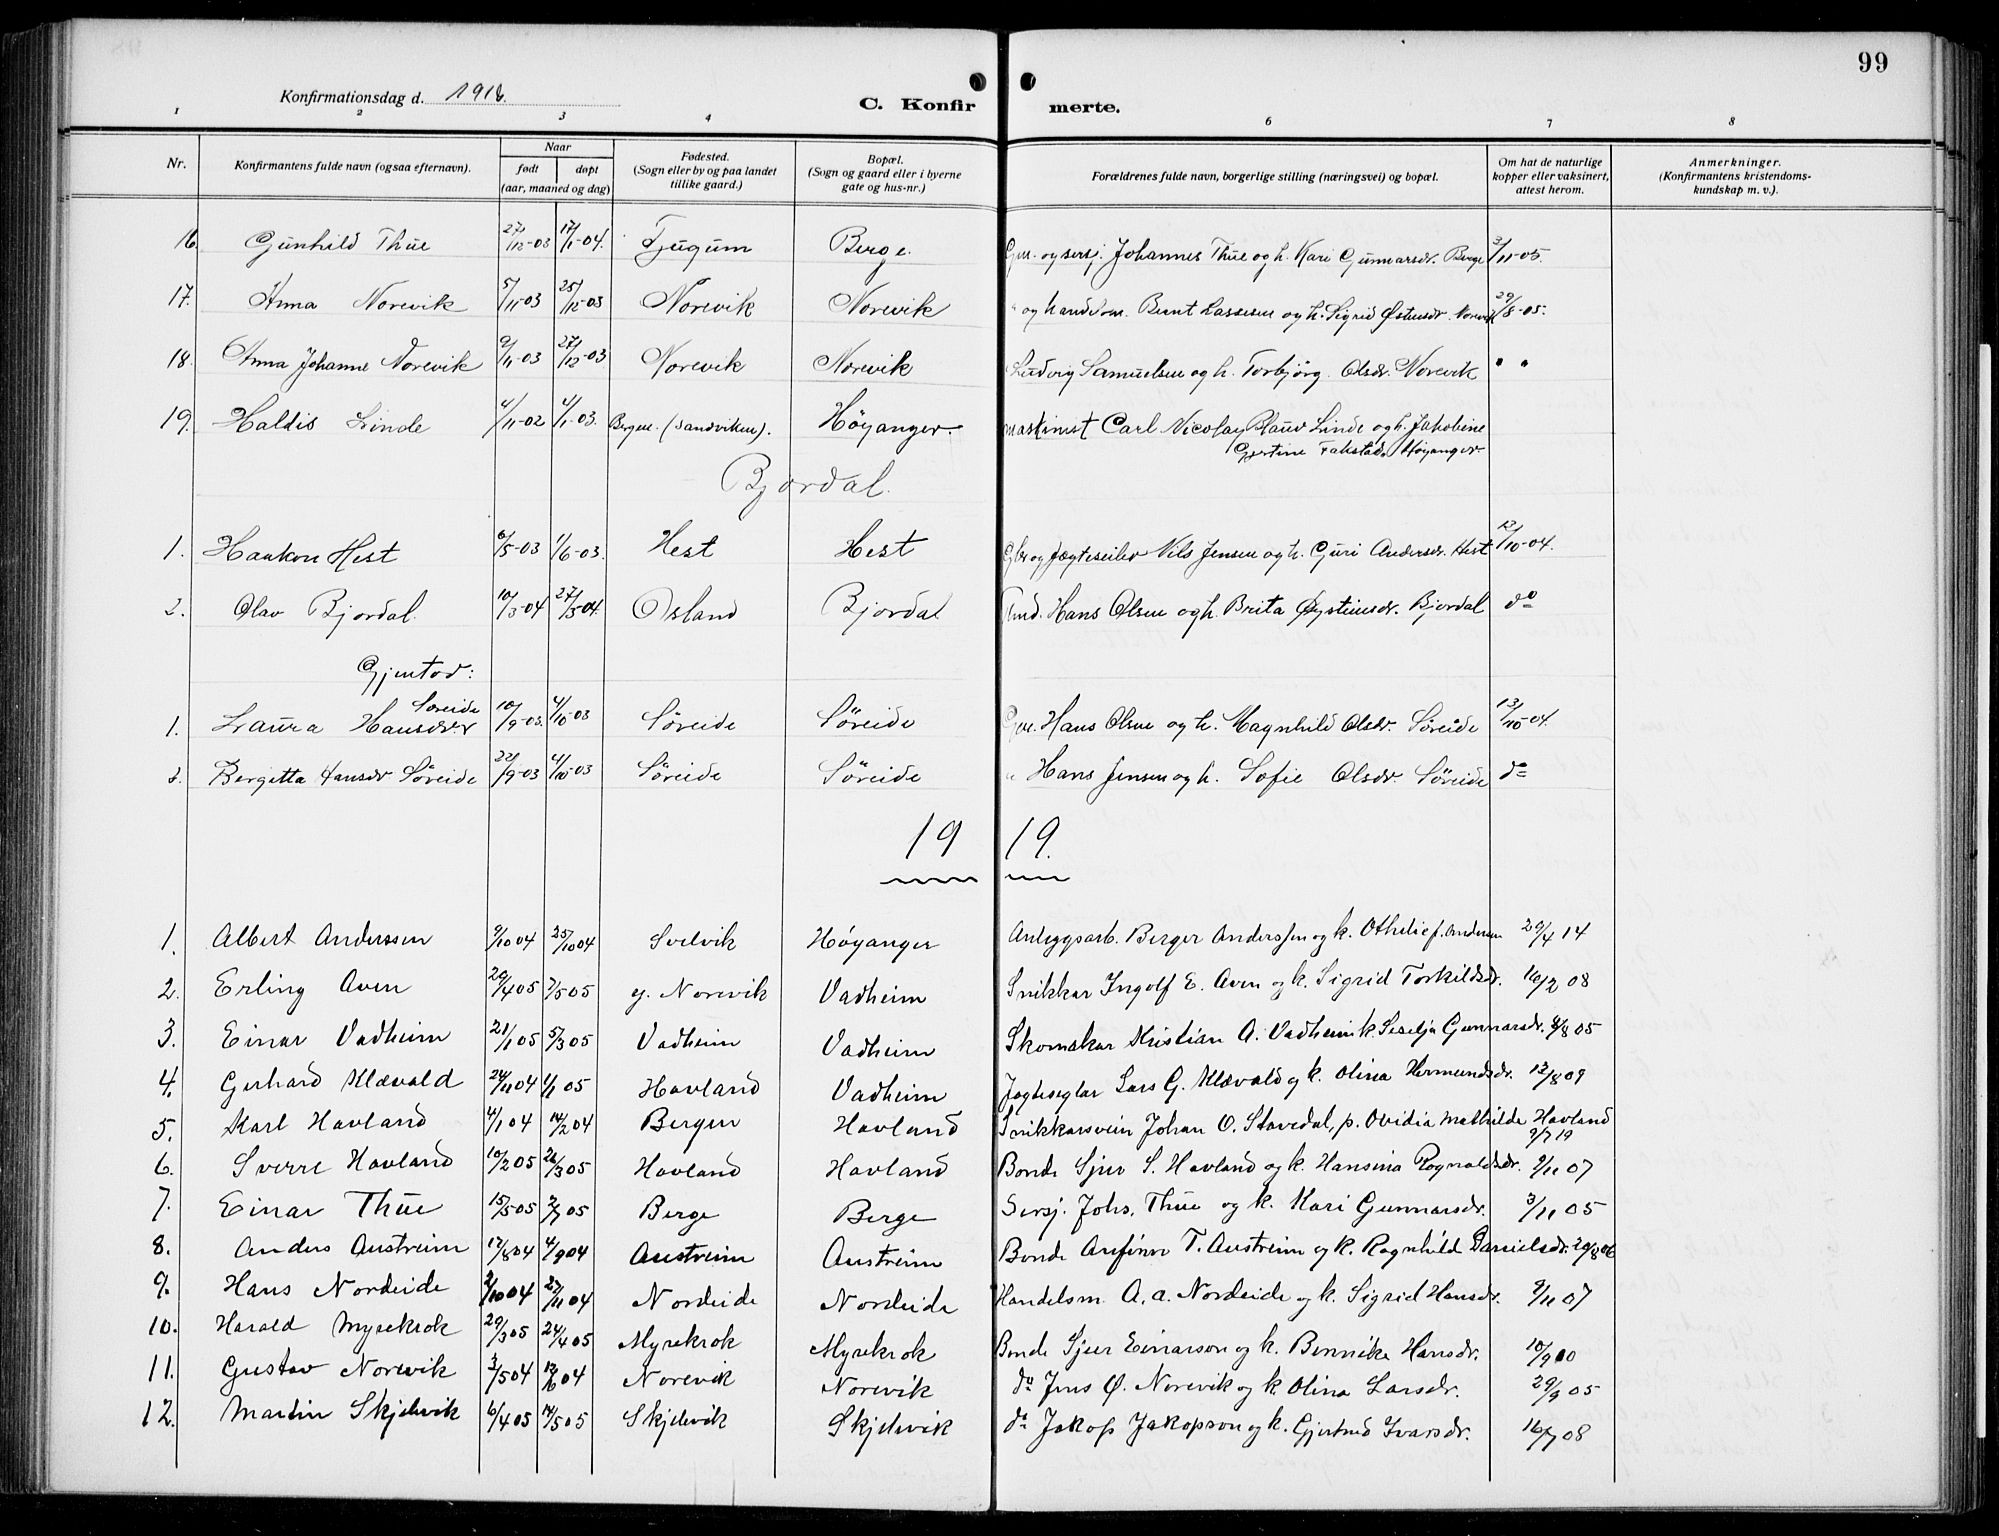 99
Konfirmationsdag d. 1918.
C. Konfir merte.
1 2 3 4 6 7 8
Nr.
Konfirmantens fulde navn (ogsaa efternavn).
Naar
født døpt
(aar, maaned og dag)
Fødested.
(Sogn eller by og paa landet
tillike gaard.)
Bopæl.
(Sogn og gaard eller i byerne
gate og hus-nr.)
Forældrenes fulde navn, borgerlige stilling (næringsvei) og bopæl.
Om hat de naturlige
kopper eller vaksinert,
attest herom.
Anmerkninger.
(Konfirmantens kristendoms-
kundskap m. v.).
16. Gunhild Thue 27/12-03 17/1-04. Tjugum Berge. og sersj. Johannes Thue og h. Kari Gunnarsdr. Berge 3/11-05.
17. Anna Norevik 5/11-03 25/12-03 Norevik Norevik " og handelsm. Bernt Lassesen og h. Sigrid Østensdr. Norevik 29/8-05.
18. Anna Johanne Norevik 9/11-03 27/12-03 Norevik Norevik Ludvig Samuelsen og h. Torbjørg Olsdr. Norevik " "
19. Haldis Linde 4/11-02 4/1-03. Bergen (Sandviken). Høyanger. maskinist Carl Nicolay Linde og h. Jakobine
Gjertine Høyanger
Bjordal.
1. Haakon Hest 6/5-03 1/6-03. Hest Hest Gbr og Jægteseiler Nils Jensen og h. Guri Andersdr. Hest 12/10-04.
2. Olav Bjordal. 10/3-04 27/3-04. Osland Bjordal Hans Olsen og h. Brita Øysteinsdr. Bjordal do
Gjentor:
Søreide
1. Laura Hansdr 10/9-03. 4/10-03 Søreide Søreide Hans Olsen og h. Magnhild Olsdr. Søreide 13/10-04.
2. Bergitta Hansdr Søreide 22/9-03 4/10-03 Søreide Søreide " Hans Jensen og h. Sofie Olsdr. Søreide do
19 19.
1. Albert Anderssen 9/10 04 25/10 04 Svelvik Høyanger Anleggsarb. Berger Anderssen og k. Othelie f. Andersen 20/4 14
2. Erling Aven 20/4 05 7/5 05 y. Norevik Vadheim Snikkar Ingolf E. Aven og k. Sigrid Torkildsdr. 16/2 08
3. Einar Vadheim 21/1 05 5/3 05 Vadheim Vadheim Skomakar Kristian A. Vadheim k. Seselja Gunnarsdr. 4/8 05
4. Gerhard Klævold 24/11 04 1/1 05 Havland Vadheim Jagteseglar Lars G. Klævold og k. Olina Hermundsdr. 12/8 09
5. Karl Havland 4/1 04 14/2 04 Bergen Havland Snikkarsvein Johan O. Stavedal, p. Ovidia Mathilde Havland
9/7 19
6. Sverre Havland 10/2 05 26/3 05 Havland Havland Bonde Sjur S. Havland og k. Hansina Rognaldsdr. 9/11 07
7. Einar Thue 15/5 05 2/7 05 Berge Berge Sersj. Johs. Thue og k. Kari Gunnarsdr. 3/11 05
8. Anders Austreim 12/8 04 4/9 04 Austreim Austreim Bonde Anfinn T. Austreim og k. Ragnhild Danielsdr. 20/8 06
9. Hans Nordeide 2/10 04 27/11 04 Nordeide Nordeide Handelsm. A. A. Nordeide og k. Sigrid Hansdr. 9/11 07
10. Harald Myrekrok 29/3 05 24/4 05 Myrekrok Myrekrok Bonde Sjur Einarson og k. Binnike Hansdr. 10/9 00
11. Gustav Norevik 3/5 04 12/6 04 Norevik Norevik do Jens Ø. Norevik og k. Olina Larsdr. 29/9 05
12. Martin Skjelvik 6/4 05 14/5 05 Skjelvik Skjelvik do Jakop Jakopson og k. Gjertrud Ivarsdr. 16/7 08